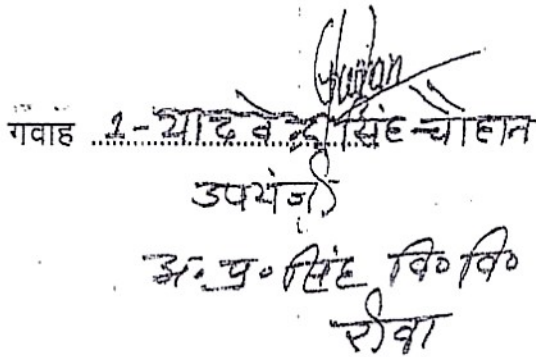 गवाह 1-यादवेन्द्र सिंह-चौहान
उपयंत्री
अ. प्र० सिंह वि० वि०
रीवा